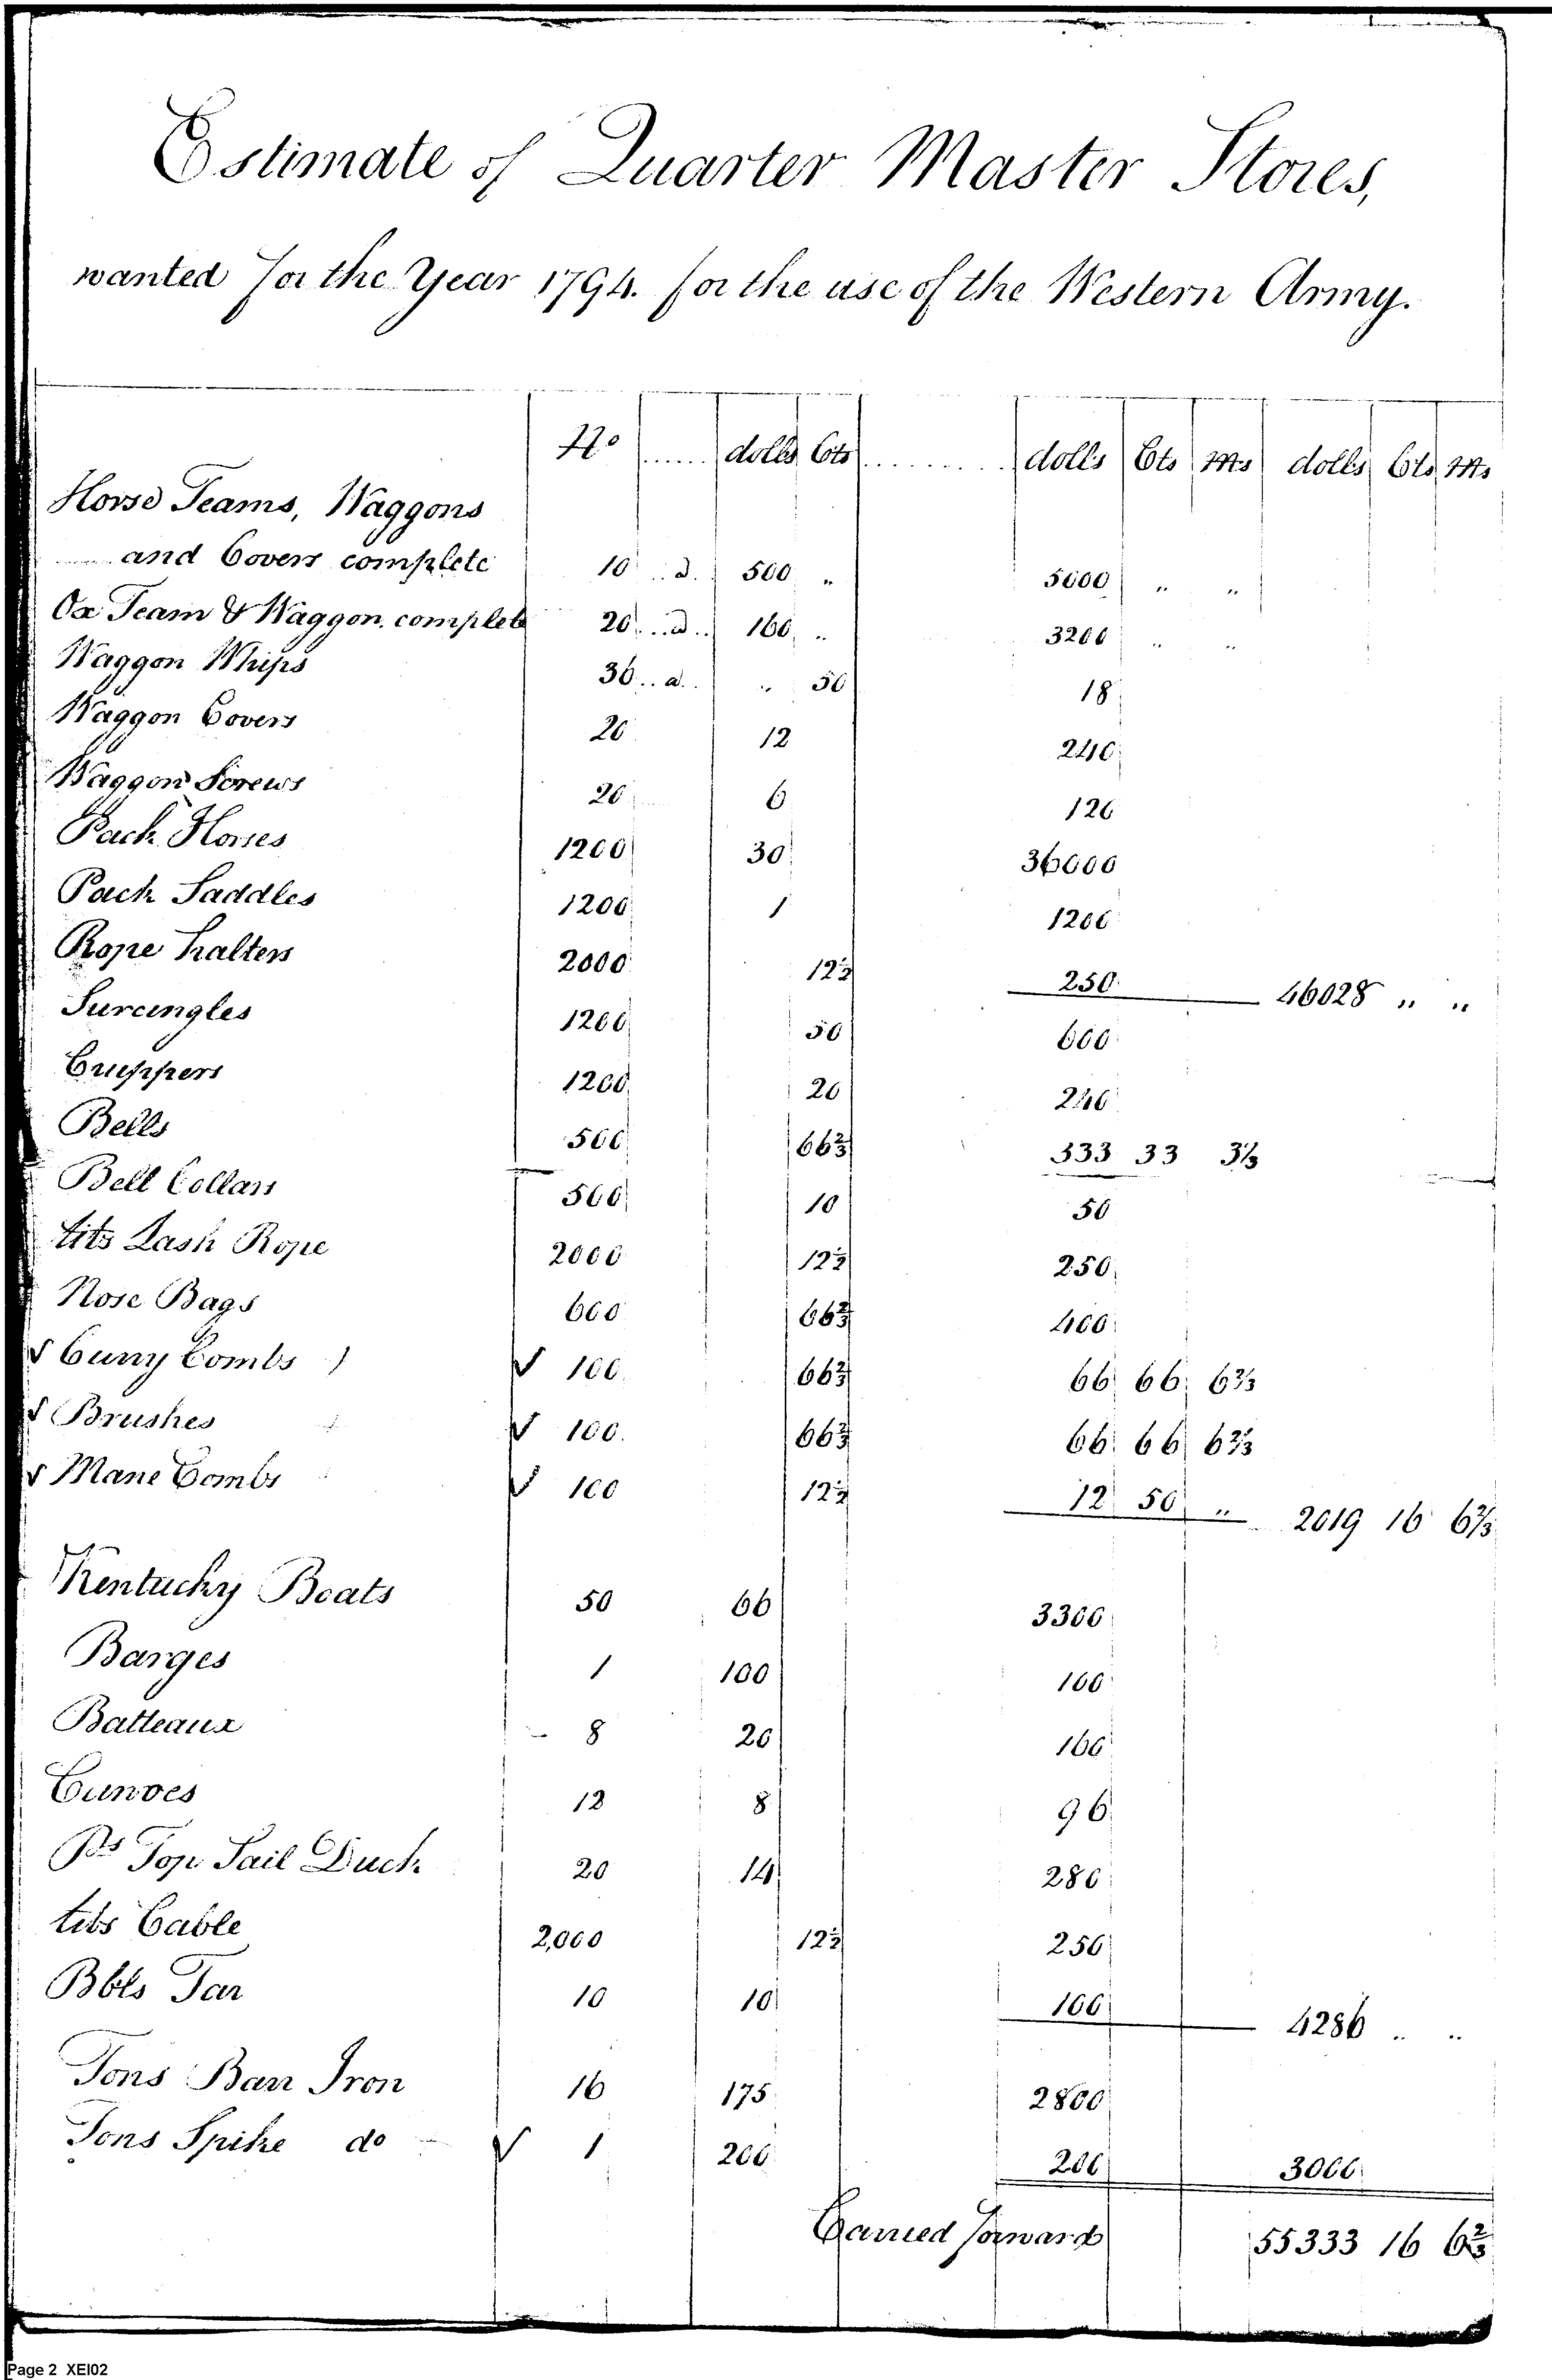 Estimate of Quarter Master Stores,
wanted for the Year 1794. for the use of the Western Army.
No ...... dolls Cts .......... dolls Cts Ms dolls Cts Ms
Horse Teams, Waggons
and Covers complete 10 .. a. 500 " 5000 " "
Ox Team & Waggon complete 20 .. a.. 160 " 3200 " "
Waggon Whips 36 .. a.. " 50 18
Waggon Covers 20 12 240
Waggon Screws 20 6 120
Pack Horses 1200 30 36000
Pack Saddles 1200 1 1200
Rope halters 2000 12½ 250 46028 " "
Surcingles 1200 50 600
Cruppers 1200 20 240
Bells 500 66⅔ 333 33 3⅓
Bell Collars 500 10 50
lbs Lash Rope 2000 12½ 250
Nose Bags 600 66⅔ 400
✓ Curry Combs ✓ 100 66⅔ 66 66 6⅔
✓ Brushes ✓ 100 66⅔ 66 66 6⅔
✓ Mane Combs ✓ 100 12½ 12 50 " 2019 16 6⅔
Kentucky Boats 50 66 3300
Barges 1 100 100
Batteaux 8 20 160
Canoes 12 8 96
Ps Top Sail Duck 20 14 280
lbs Cable 2,000 12½ 250
Bbls Tar 10 10 100 4286 " "
Tons Barr Iron 16 175 2800
Tons Spike do ✓ 1 200 200 3000
Carried forward 55333 16 6⅔
Page 2 XEI02